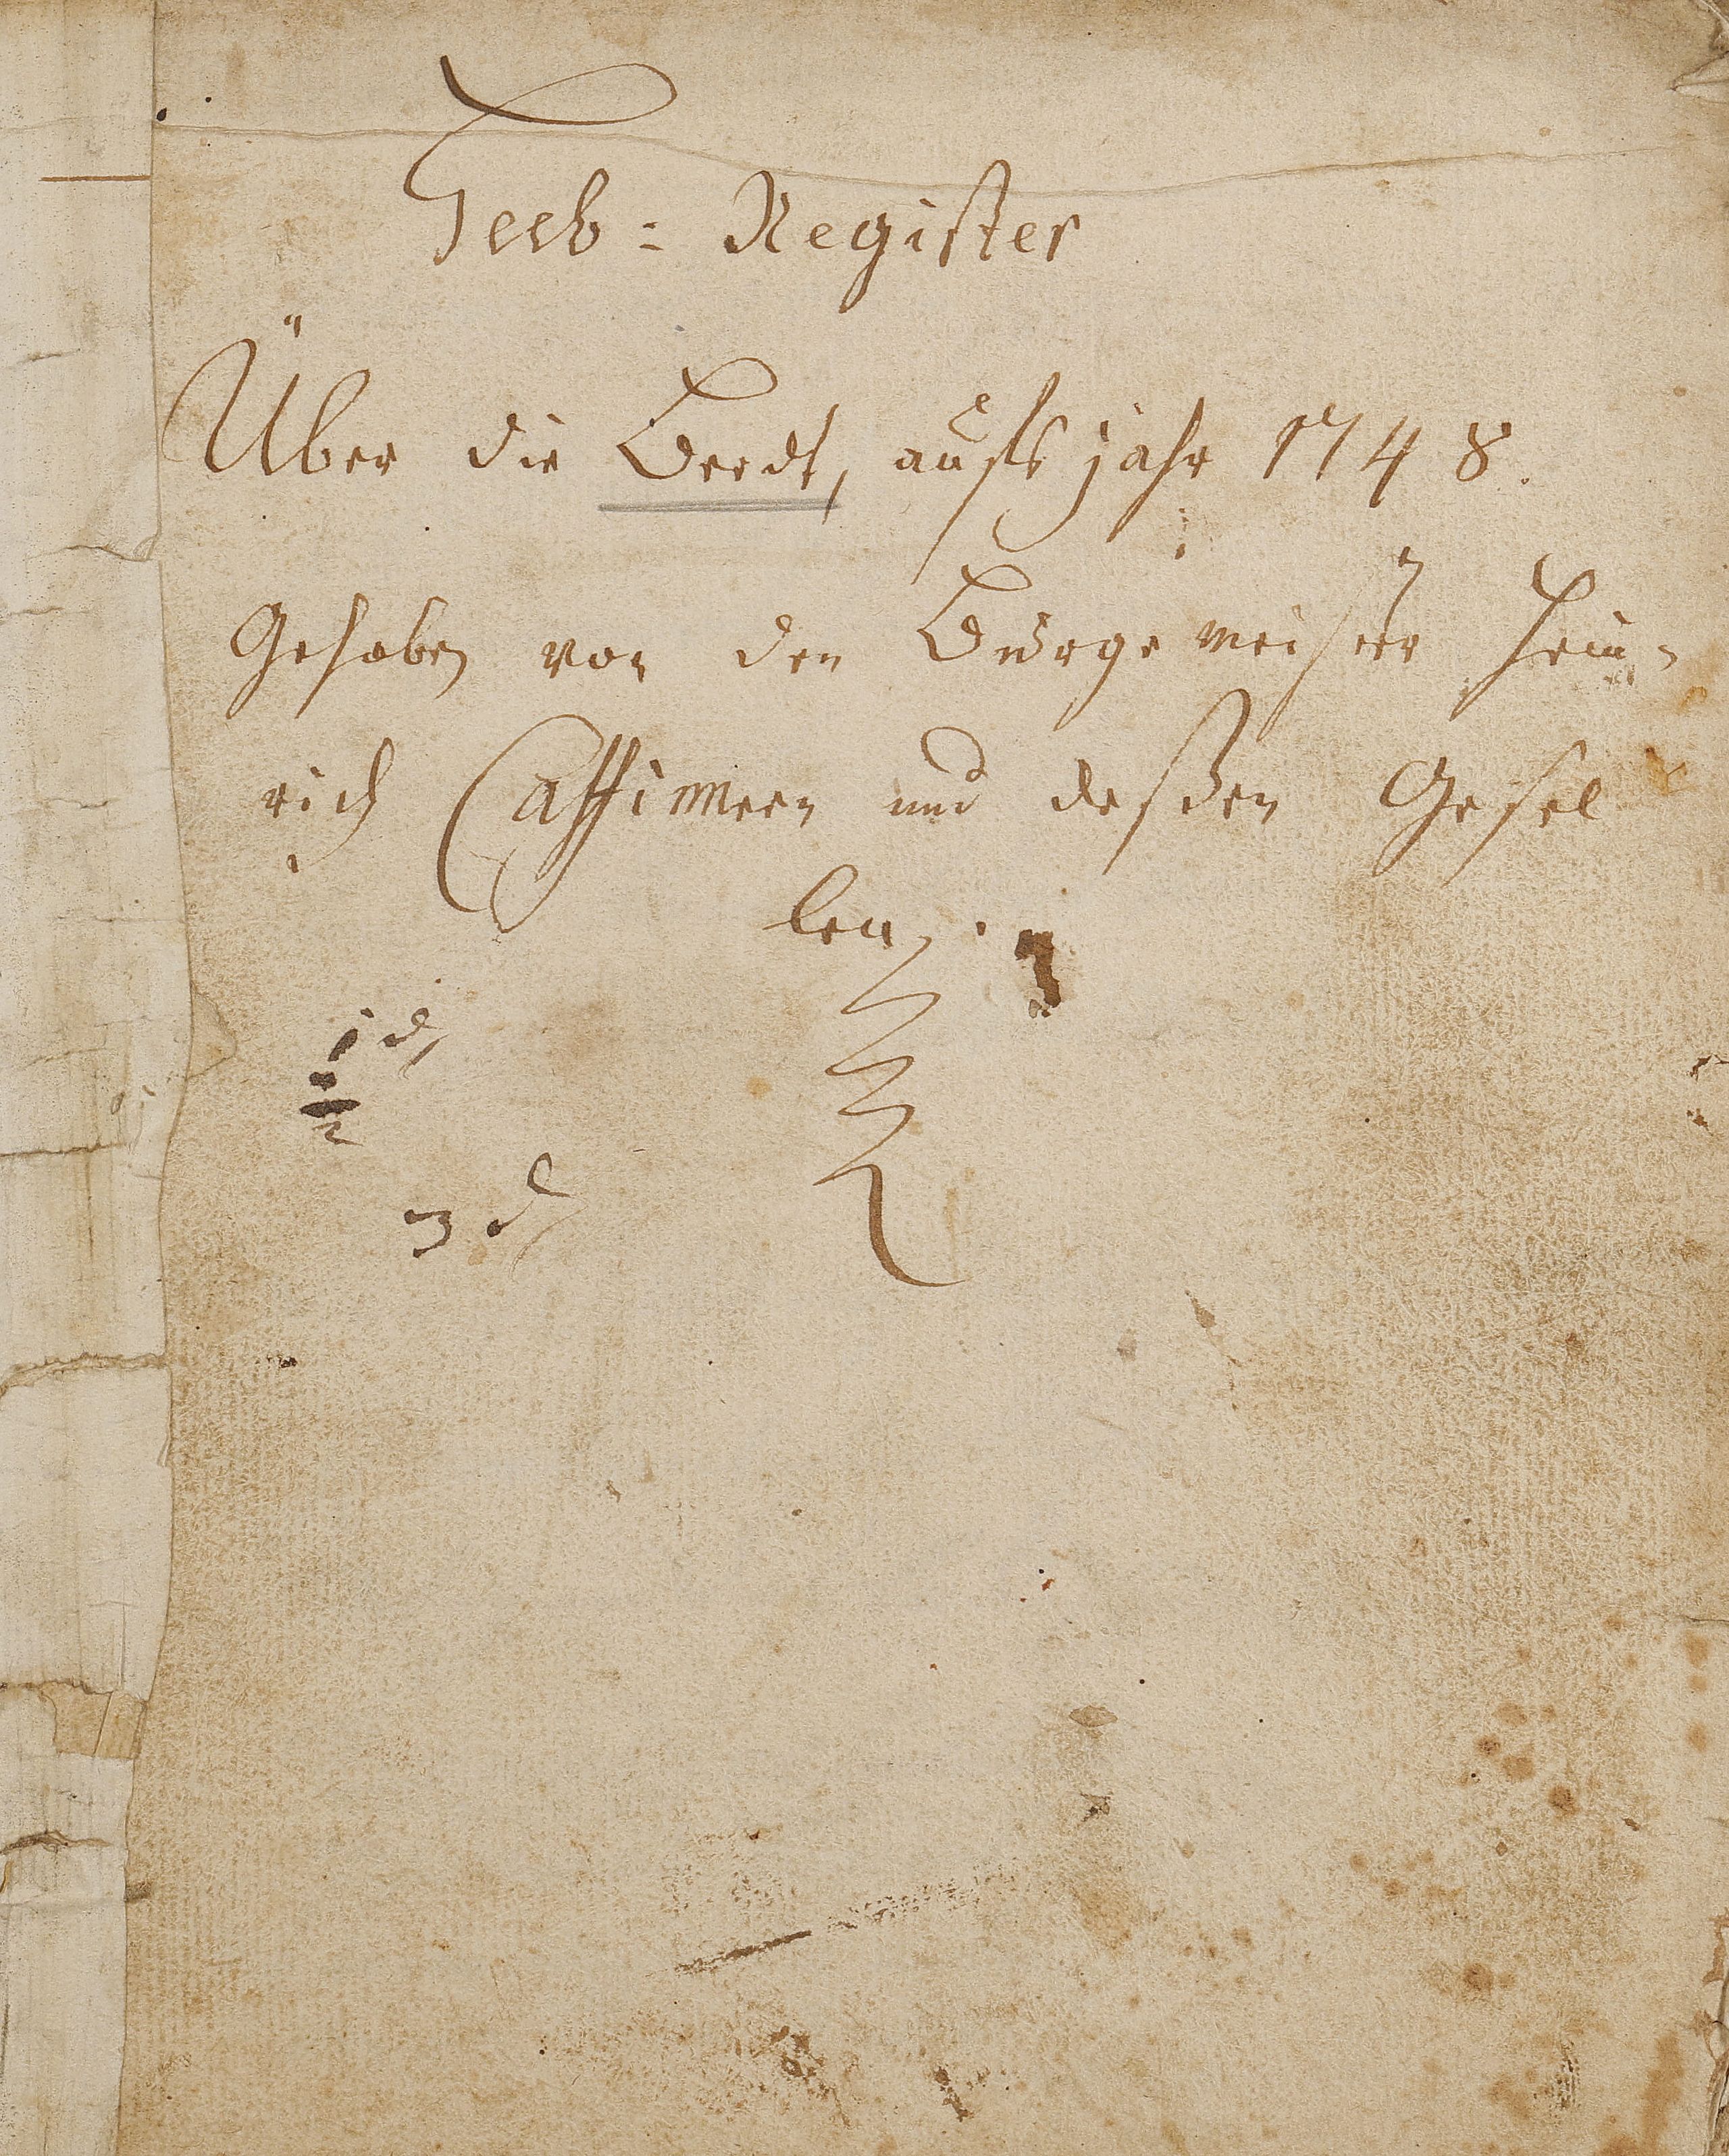 Heeb = Register
Über die Beedt, aufs jahr 1748.
Gehoben von den Bürgemeister Hein-
rich Cassimern und deßen Gesel
len.
1 d
3 d